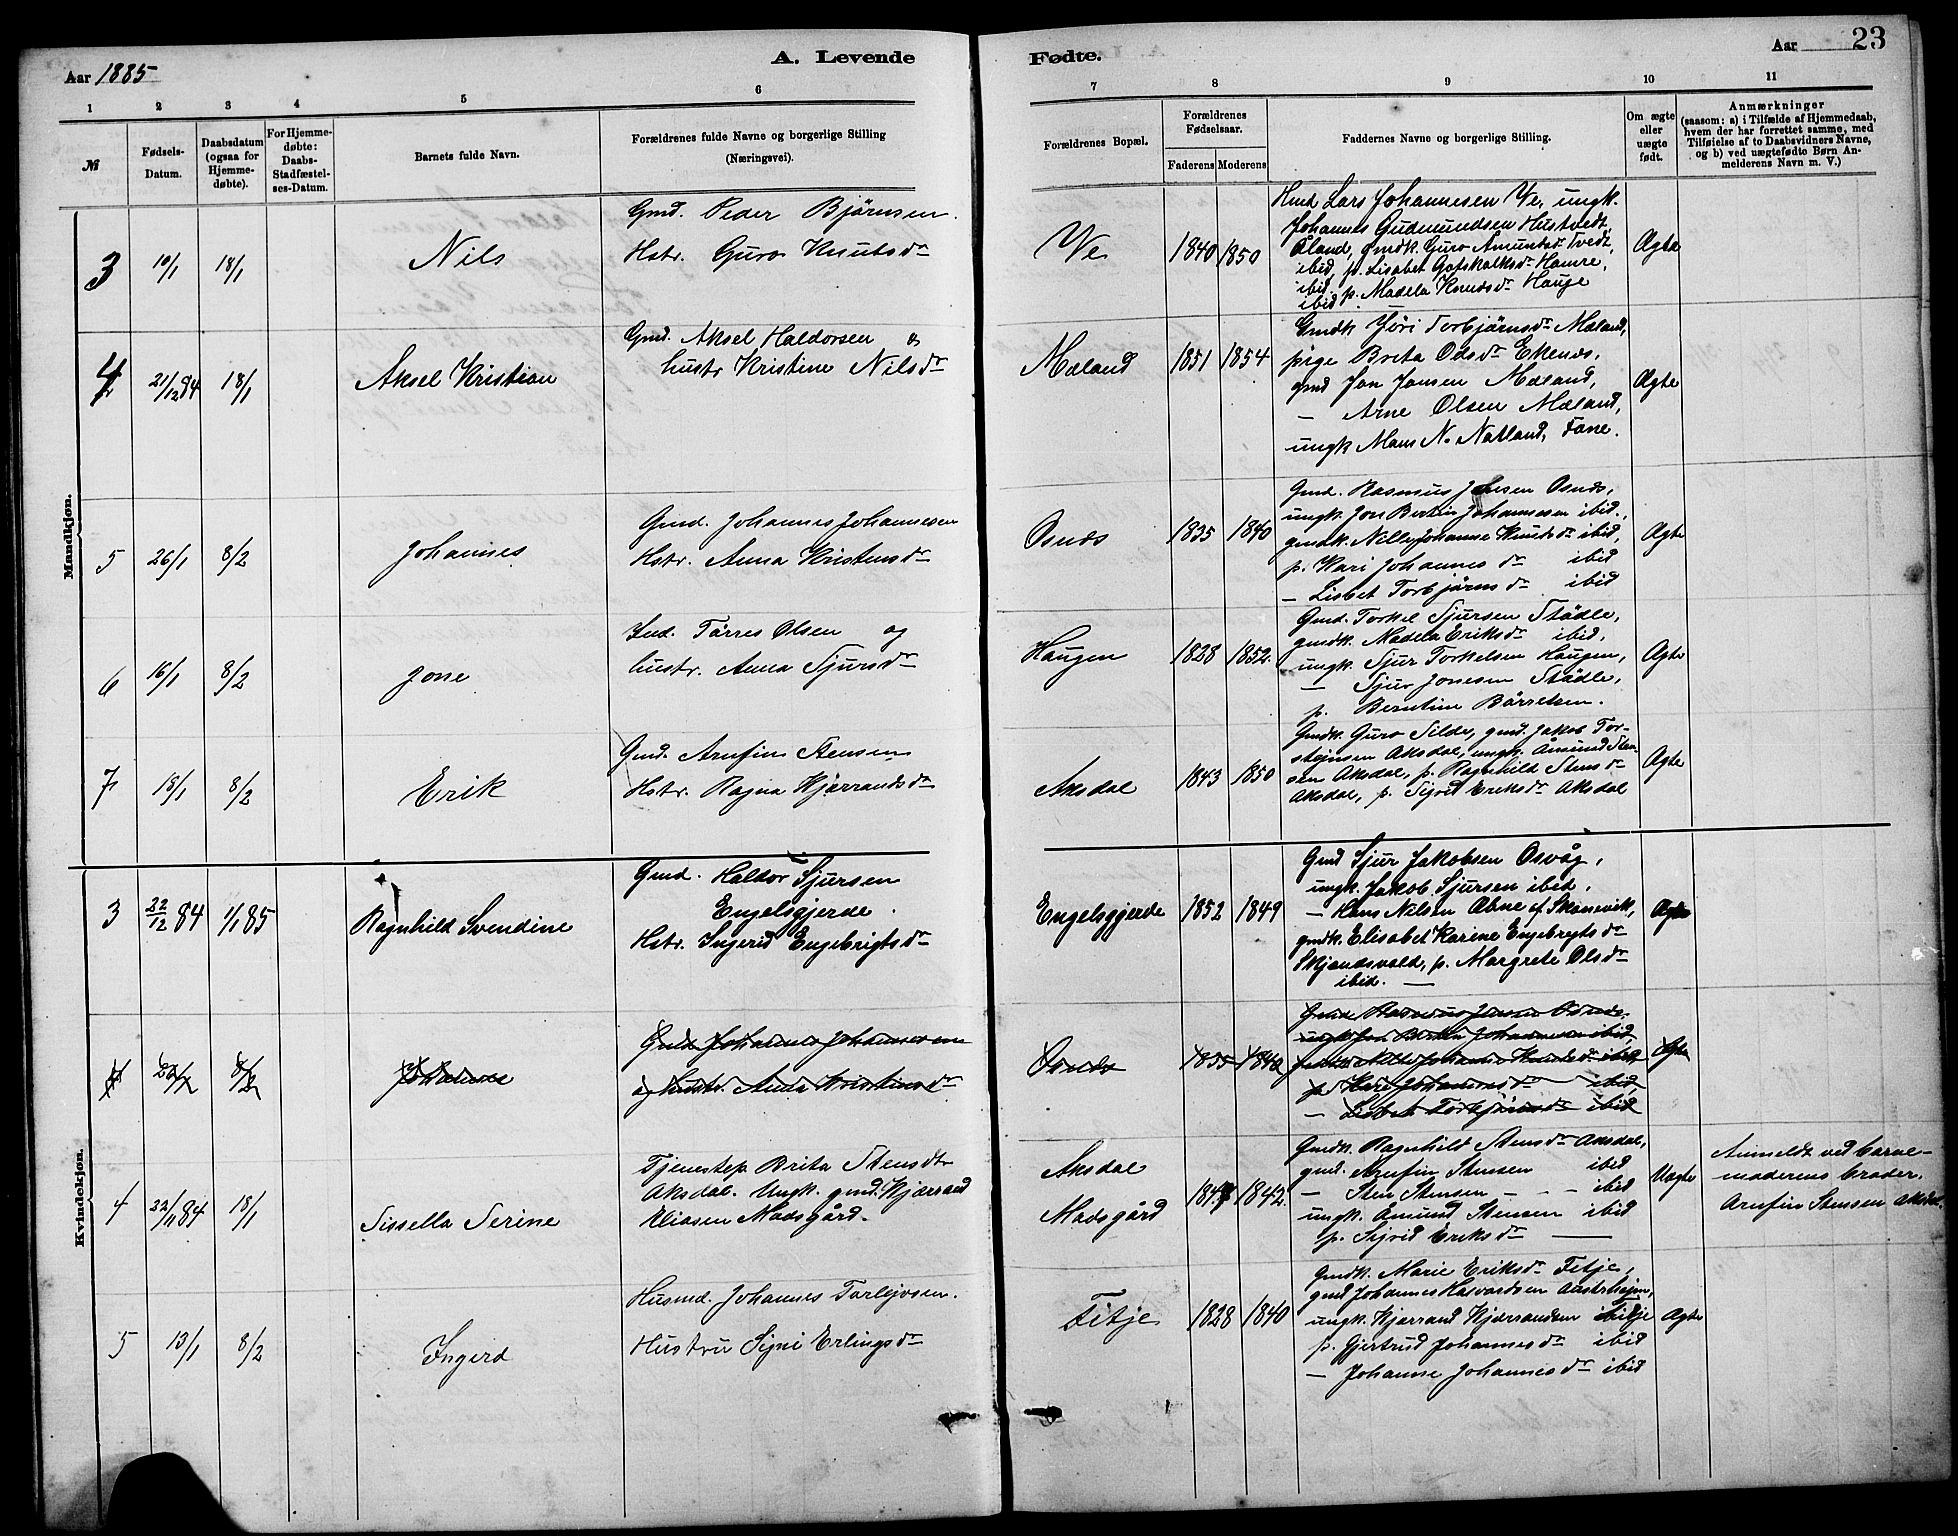 Aar 1885
A. Levende
Fødte.
Aar
23
1
2
3
4
5
6
7
8
9
10
11
№
Fødsels-
Datum.
Daabsdatum
(ogsaa for
Hjemme-
døbte).
For Hjemme-
døbte:
Daabs-
Stadfæstel-
ses-Datum.
Barnets fulde Navn.
Forældrenes fulde Navne og borgerlige Stilling
(Næringsvei).
Forældrenes Bopæl.
Forældrenes
Fødselsaar.
Faderens
Moderens
Faddernes Navne og borgerlige Stilling.
Om ægte
eller
uægte
født.
Anmærkninger
(saasom: a) i Tilfælde af Hjemmedaab,
hvem der har forrettet samme, med
Tilføielse af to Daabsvidners Navne,
og b) ved uægtefødte Børn An-
melderens Navn m. V.)
Mandkjøn.
3
10/1
18/1
Nils
Gmd. Peder Bjørnsen.
Hstr. Guro Knutsdr
Ve
1840
1850
Hmd Lars Johannesen Ve, ungk.
Johannes Gudmundsen Hustvedt,
Åland, gmdk. Guro Amundsdr Tvedt,
ibid, p. Lisabet Gotskalksdr Hamre,
ibid. p. Madela Knudsdr Hauge
ibid.
Ægte
4
21/12 84
18/1
Aksel Kristian
Gmd. Aksel Haldorsen &
hustr Kristine Nilsdr
Mæland
1851
1854
Gmdk Jöri Torbjörnsdr Mæland,
pige Brita Odsdr Ekenes,
gmd Jon Jansen Mæland,
— Arne Olsen Mæland,
ungk Mans N. Natland, Fane.
Ægte
5
26/1
8/2
Johannes
Gmd. Johannes Johannesen
Hstr. Anna Kristensdr
Osnæs
1835
1840
Gmd. Rasmus Jensen Osnæs,
ungk. Jon Bertin Johannesen ibid.,
gmdk. Nille Johanne Knutsdr ibid,
p. Kari Johannesdr ibid
— Lisbet Torbjørnsdr ibid
Ægte
6
16/1
8/2
Jone
Ind. Tørres Olsen og
hustr. Anna Sjursdr
Haugen
1828
1852.
Gmd. Torkel Sjursen Stödle,
gmdk. Madela Eriksdr ibid,
ungk. Sjur Torkelsen Haugen,
— Sjur Jonesen Stödle,
p. Berntine Börretsen.
Ægte
7
18/1
8/2
Erik
Gmd. Arnfin Stensen
Hstr. Ragna Kjærrandsdr
Aksdal
1843
1850
Gmdk. Guro Silde, gmd. Jakob Tor-
stejnsen Aksdal, ungk. Åmund Sten-
sen Aksdal, p. Ragnhild Stensdr
Aksdal, p. Sigrid Eriksdr Aksdal
Ægte
Kvindekjøn.
3
22/12 84
1/1 85
Ragnhild Svendine
Gmd. Haldor Sjursen
Engelsgjerde.
Hstr. Ingerid Engebrigtsdr
Engelsgjerde
1852
1849
Gmd Sjur Jakobsen Osvåg,
ungk. Jakob Sjursen ibid,
— Hans Nilsen Æbne af Skonevik,
gmdk. Elisabet Karine Engebregtsdr
Skjændsvold, p. Margrete Olsdr
ibid. —
Ægte
8/2
Johannes
Gmd. Johannes Johannesen
og hustr. Anna Kristensdr
Osnæs
1835
1840
Gmd. Rasmus Jensen Osnæs,
ungk Jon Bertin Johannesen ibid,
gmdk. Nille Johanne Knutsdr ibid
p Kari Johannesdr ibid,
— Lisbet Torbjørnsdr ibid
Ægte
4
22/11 84
18/1
Sissella Serine
Tjenestep. Brita Stensdtr
Aksdal. Ungk. gmd. Kjærrand
Eliasen Madsgård.
Aksdal
Madsgård
1842.
Gmdk. Ragnhild Stensdr Aksdal,
gmd. Arnfin Stensen ibid
— Sten Stensen - - - ibid
ungk. Amund Stensen ibid
p. Sigrid Eriksdr —
Uægte
Anmeldt ved barne-
moderens broder.
Arnfin Stensen Aksdal.
5
13/1
8/2
Ingerd
Husmd. Johannes Torlejvsen.
Hustru Signi Erlingsdr
Fitje
1828
1840
Gmdk. Marie Eriksdr Fitje,
gmd Johannes Havardsen Austerheim,
ungk. Kjærrand Kjærrandsen Fitje
p. Gjertrud Johannesdr ibid
— Johanne Johannesdr ibid
Ægte